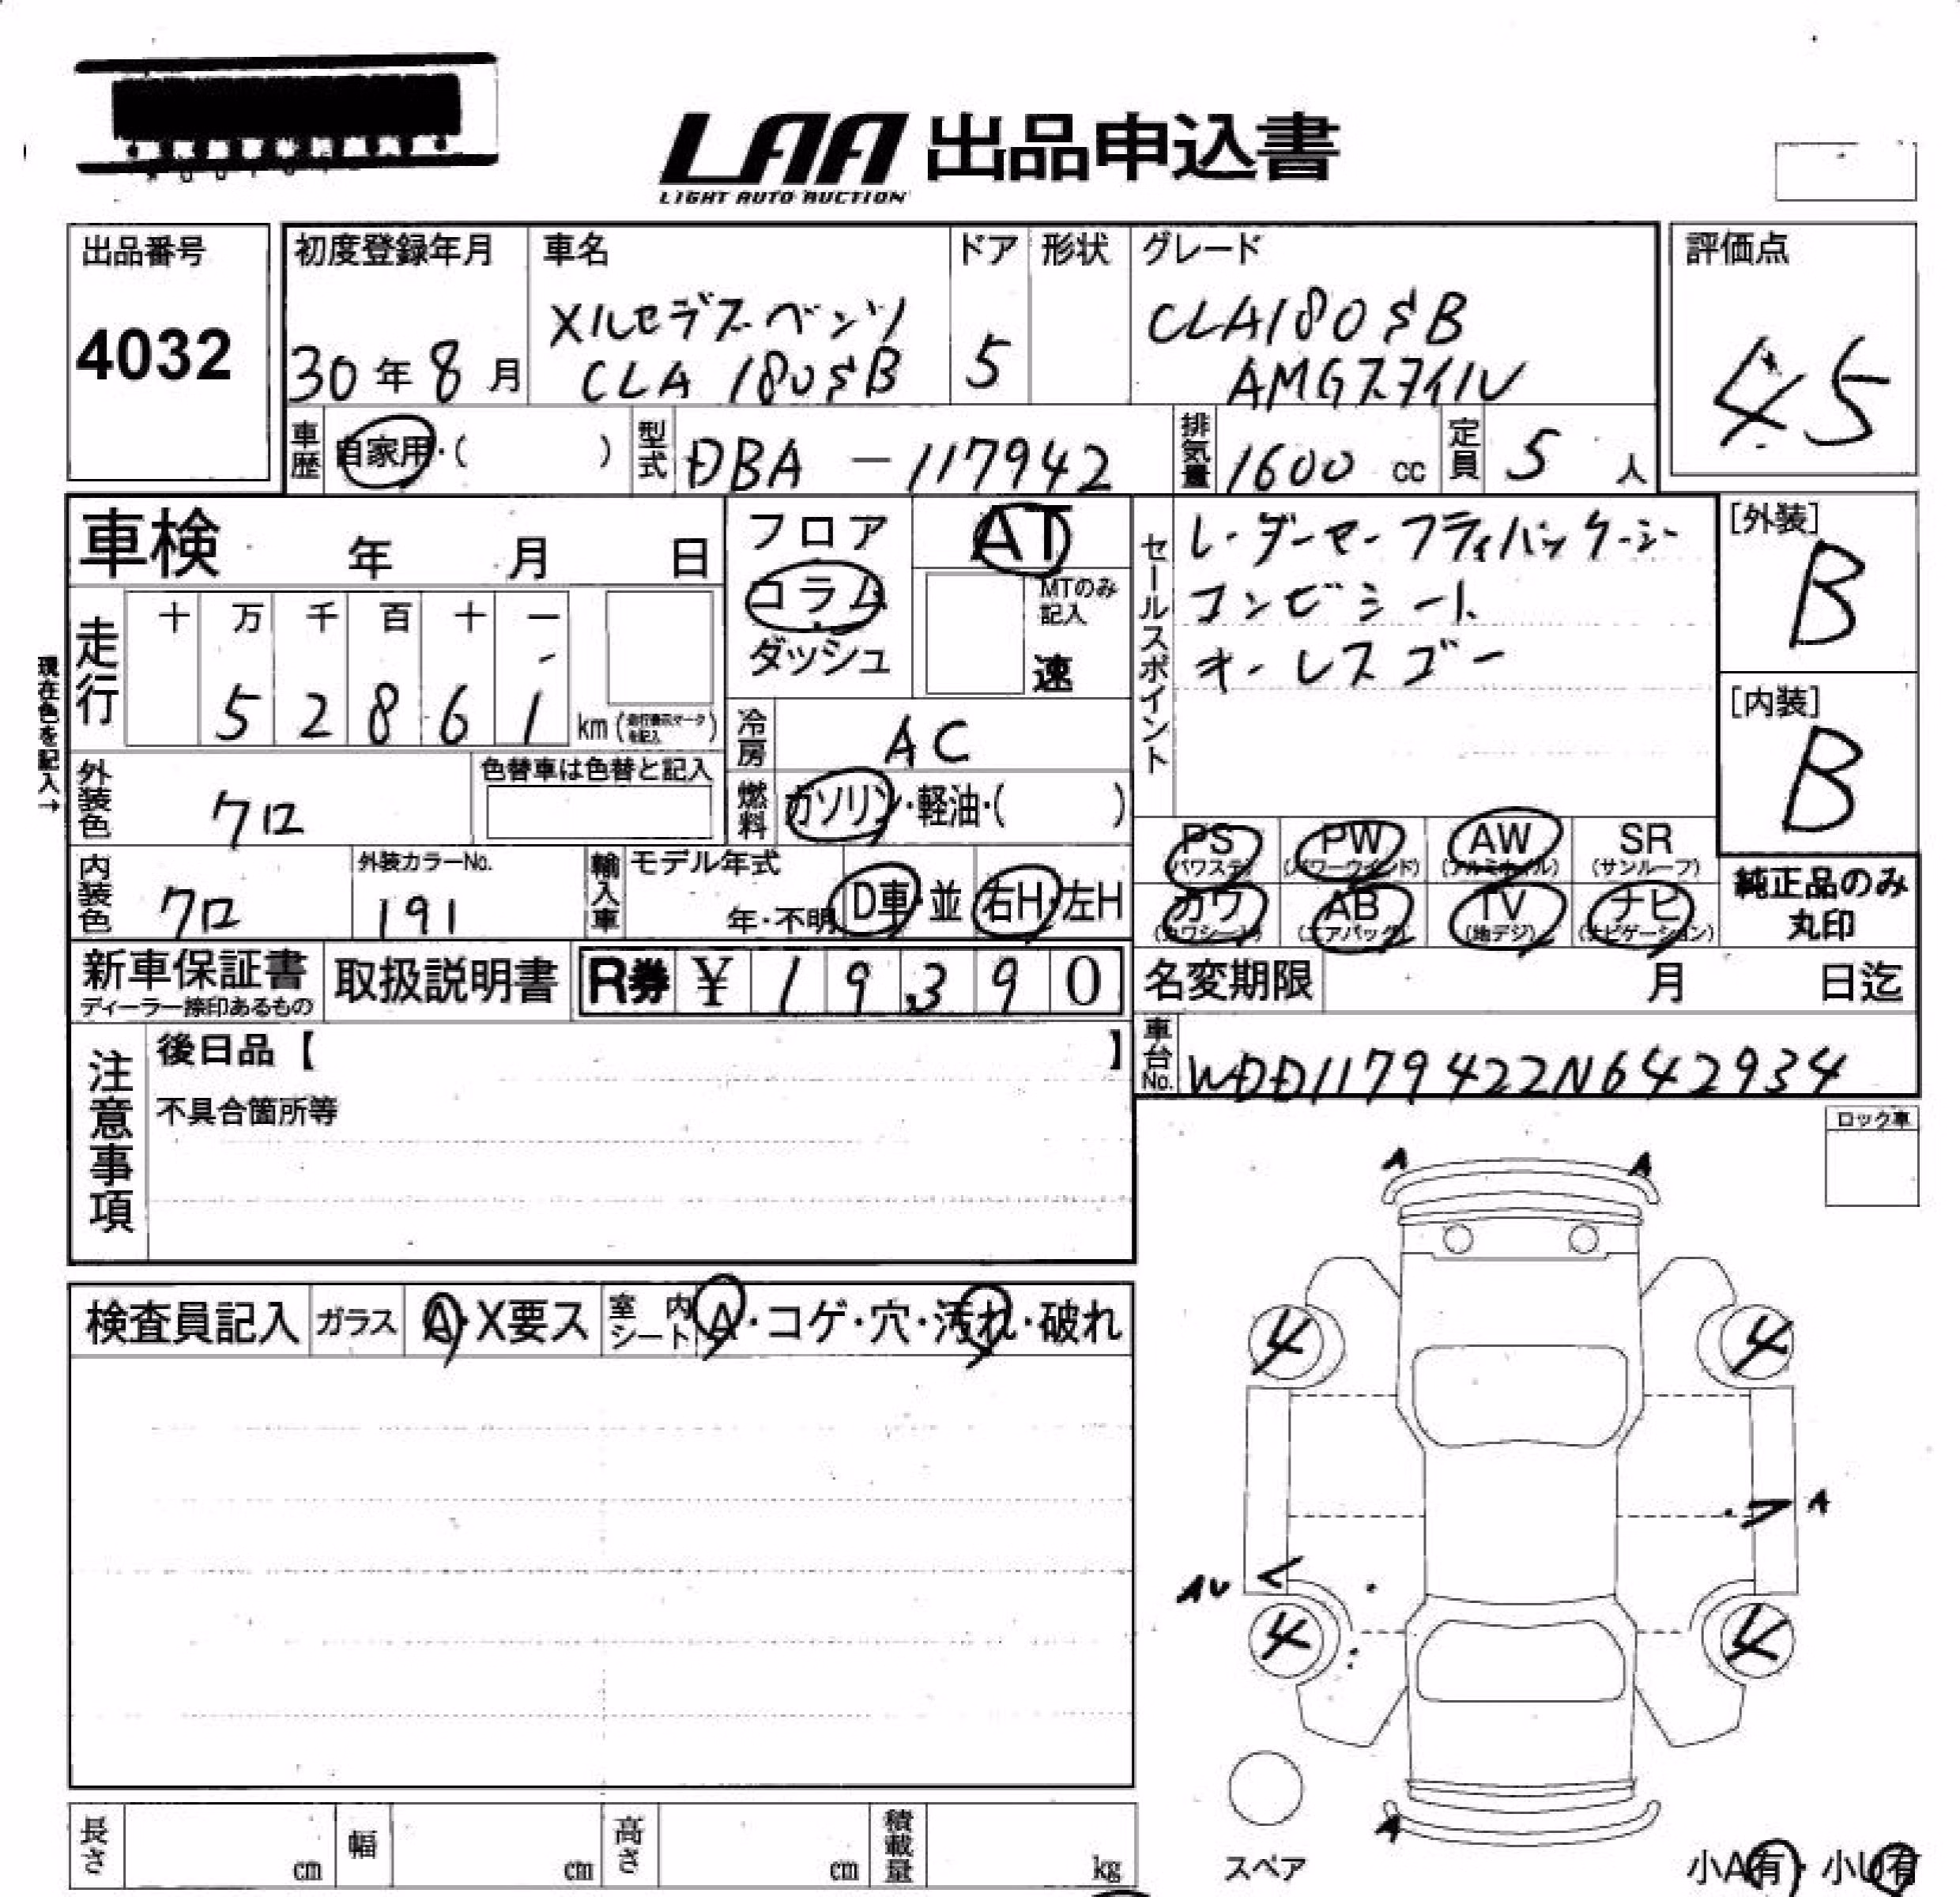 LAA 出品申込書
LIGHT AUTO AUCTION
出品番号
4032
初度登録年月
30年8月
車名
メルセデスベンツ
CLA 180SB
ドア
5
形状
グレード
CLA180SB
AMGスタイル
評価点
4.5
車歴
自家用・( )
型式
DBA-117942
排気量
1600 cc
定員
5 人
車検 年 月 日
現在色を記入→
走行
十 万 千 百 十 一
5 2 8 6 1 km (走行表示マークを記入)
フロア
コラム
ダッシュ
AT
MTのみ記入
速
冷房
AC
燃料
ガソリン・軽油・( )
セールスポイント
レーダーセーフティパッケージ
コンビシート
キーレスゴー
[外装]
B
[内装]
B
外装色
クロ
色替車は色替と記入
内装色
クロ
外装カラーNo.
191
輸入車
モデル年式
年・不明
D車・並
右H・左H
PS (パワステ)
PW (パワーウインド)
AW (アルミホイル)
SR (サンルーフ)
カワ (カワシート)
AB (エアバッグ)
TV (地デジ)
ナビ (ナビゲーション)
純正品のみ
丸印
新車保証書
ディーラー捺印あるもの
取扱説明書
R券 ¥ 19,390
名変期限 月 日迄
車台No.
WDD1179422N642934
注意事項
後日品【 】
不具合箇所等
ロック車
検査員記入
ガラス
A・X要ス
室内シート
A・コゲ・穴・汚れ・破れ
A A
4 4
A
AU
4 4
A
スペア
小A有・小U有
長さ cm
幅 cm
高さ cm
積載量 kg